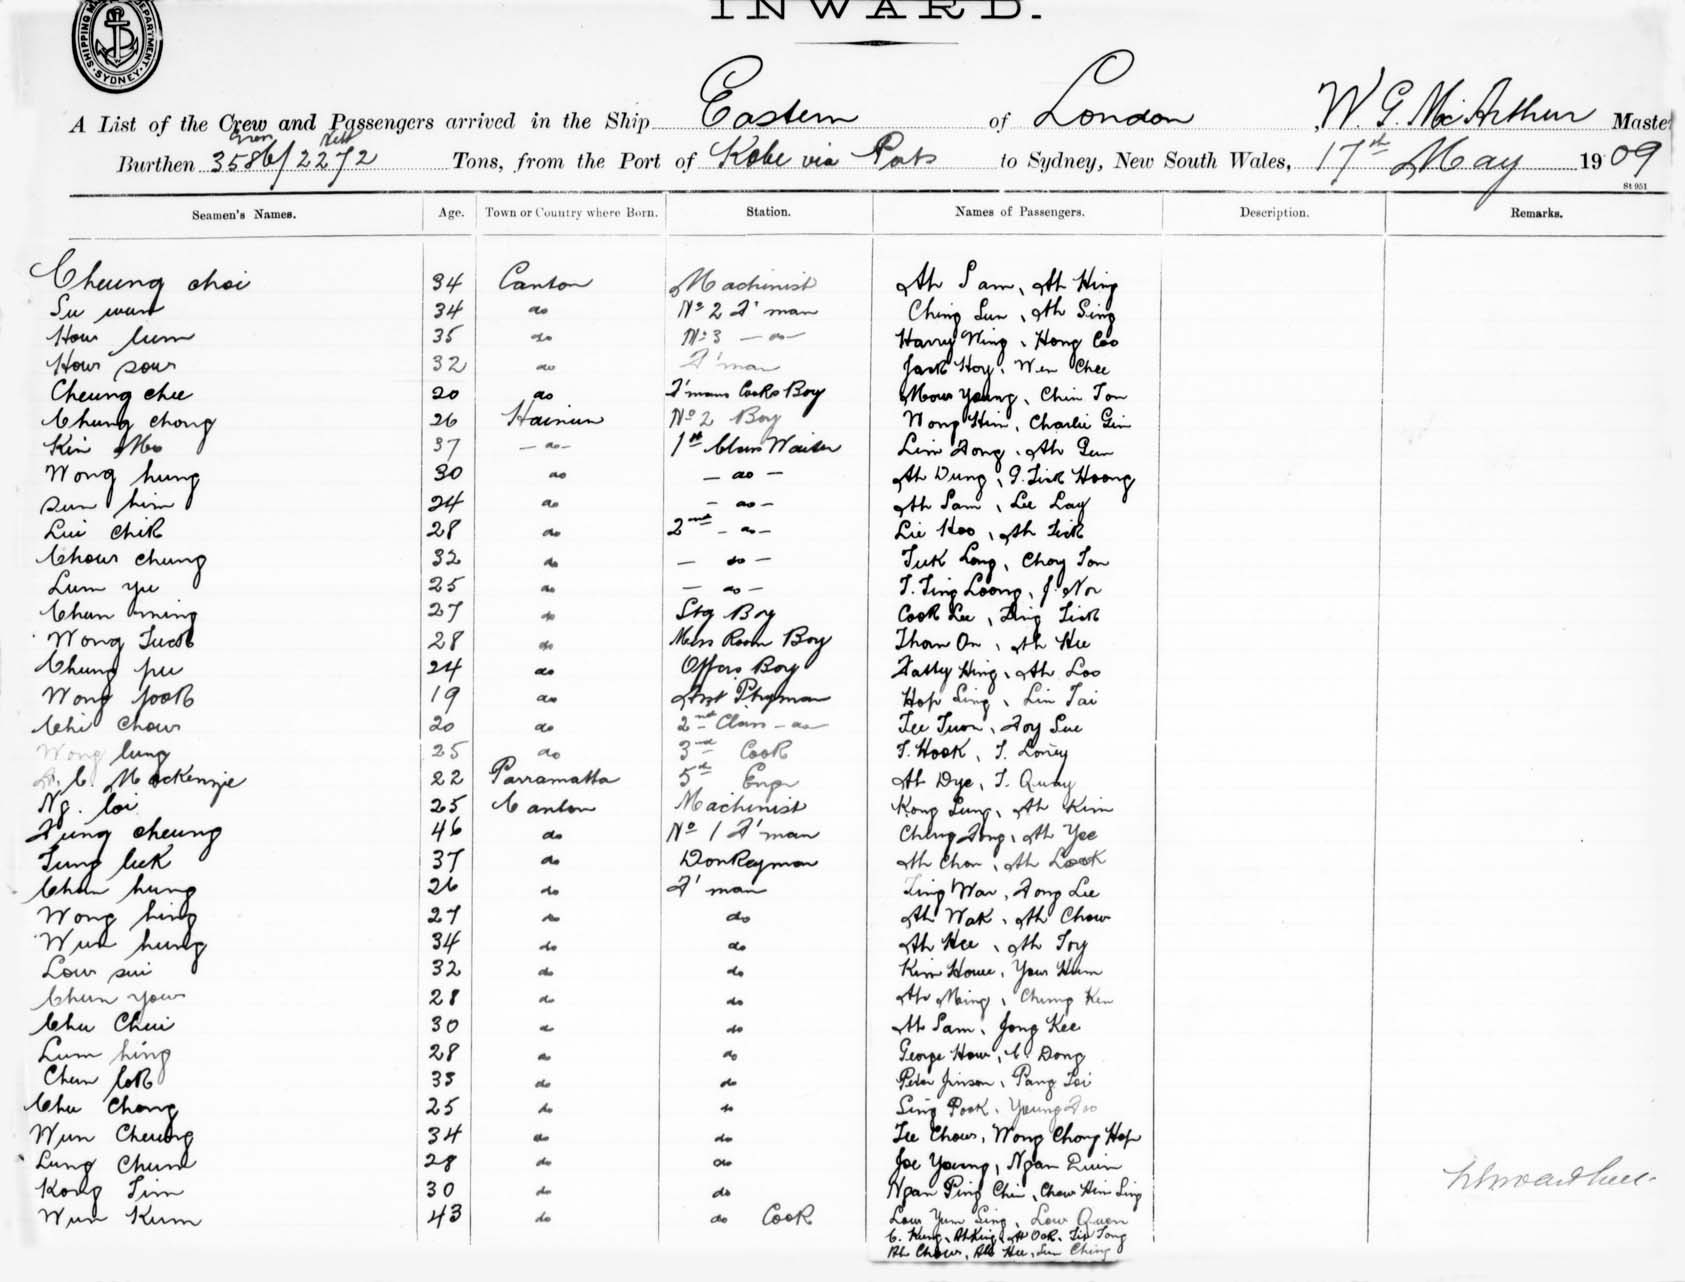 INWARD.
SHIPPING MASTER'S DEPARTMENT SYDNEY
A List of the Crew and Passengers arrived in the Ship Eastern of London, W. G. McArthur Master
Gross Nett
Burthen 3586/2272 Tons, from the Port of Kobe via Ports to Sydney, New South Wales, 17th May 1909
St 951
Seamen's Names. Age. Town or Country where Born. Station. Names of Passengers. Description. Remarks.
Cheung choi 34 Canton Machinist Ah Sam, Ah Hing
Su wun 34 do No 2 F'man Ching Sun, Ah Sing
How lum 35 do No 3 - do - Harry Wing, Hong Coo
How sow 32 do F'man Jack Hoy, Wen Chee
Cheung chee 20 do F'mans Cooks Boy Mow Young, Chin Ton
Chung chong 26 Hainun No 2 Boy Wong Him, Charlie Gin
Kin Mo 37 - do - 1st Class Waiter Lim Fong, Ah Gun
Wong hung 30 do - do - Ah Dung, G. Tick Hoong
sun him 24 do - do - Ah Sam, Lee Lay
Lui Chik 28 do 2nd - do - Lie Koo, Ah Tick
Chow chung 32 do - do - Tuck Long, Choy Ton
Lum yu 25 do - do - T. Ting Loong, J. Nor
Chun ming 27 do Stg Boy Cook Lee, Ling Tick
Wong Tuck 28 do Mess Room Boy Thom On, Ah Hee
Chung pu 24 do Offcrs Boy Fatty Hing, Ah Loo
Wong fook 19 do Asst P'tryman Hop Sing, Lin Tai
Chi Chow 20 do 2nd Class - do Tee Tuon, Foy Sue
Wong lung 25 do 3rd Cook T. Hook, T. Loney
C. Mackenzie 22 Parramatta 5th Engr Ah Dye, T. Quay
Ng. loi 25 Canton Machinist Kong Sung, Ah Kim
Fung cheung 46 do No 1 F'man Cheng Fong, Ah Yee
Tung luk 37 do Donkeyman Ah Chon, Ah Look
Chun hung 26 do F'man Ting War, Fong Lee
Wong hing 27 do do Ah Wak, Ah Chow
Wun hung 34 do do Ah Hee, Ah Toy
Low sui 32 do do Kim Howe, Yow Hum
Chun yow 28 do do Ah Ming, Chung Ken
Chu Chui 30 do do Ah Sam, Jong Kee
Lum hing 28 do do George How, C. Dong
Chun lok 33 do do Peter Jinson, Pang Loi
Chu Chong 25 do do Sing Pook, Young Foo
Wun Cheung 34 do do Lee Chow, Wong Chong Hop
Lung Chun 28 do do Joe Young, Ngan Quin
Kong Tim 30 do do Ngan Ping Chin, Chow Him Sing
Wun Kum 43 do do Cook Low Yum Sing, Low Quon
C. Kung, Ah King, Ah Ook, Lie Tong
Ah Chow, Ah Hee, Sun Ching